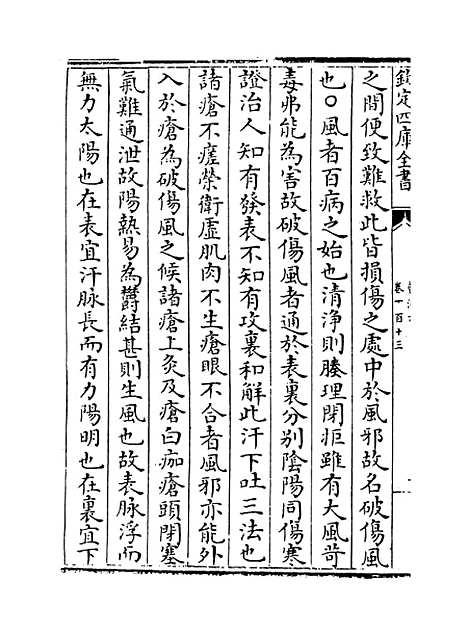 欽定四庫全書
卷一百十三
之間便致難救此皆損傷之處中於風邪故名破傷風
也○風者百病之始也清浄則腠理閉拒雖有大風苛
毒弗能為害故破傷風者通於表裏分別陰陽同傷寒
證治人知有發表不知有攻裏和解此汗下吐三法也
諸瘡不瘥榮衛虛肌肉不生瘡眼不合者風邪亦能外
入於瘡為破傷風之候諸瘡上灸及瘡白痂瘡頭閉塞
氣難通泄故陽熱易為欝結甚則生風也故表脉浮而
無力太陽也在表宜汗脉長而有力陽明也在裏宜下